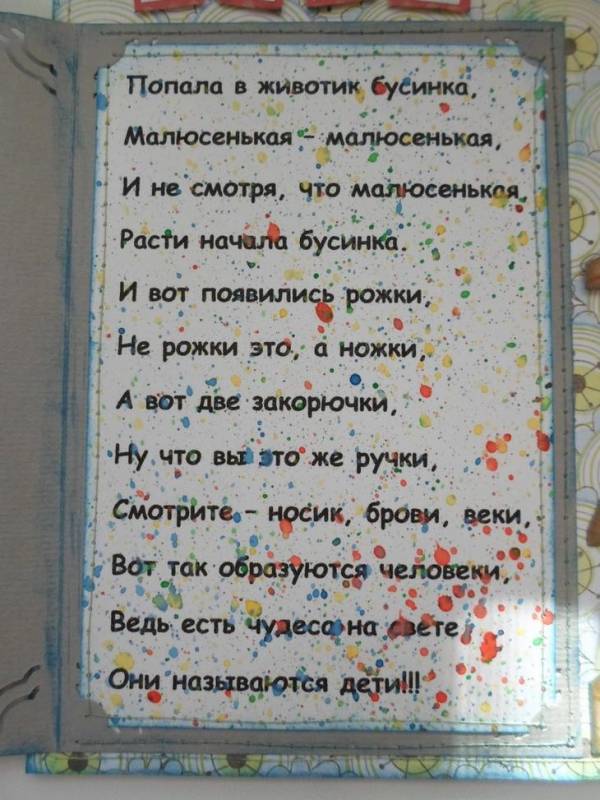 Попала в животик бусинка,
Малюсенькая – малюсенькая,
И не смотря, что малюсенькая,
Расти начала бусинка.
И вот появились рожки,
Не рожки это, а ножки,
А вот две закорючки,
Ну что вы это же ручки,
Смотрите – носик, брови, веки,
Вот так образуются человеки,
Ведь есть чудеса на свете,
Они называются дети!!!